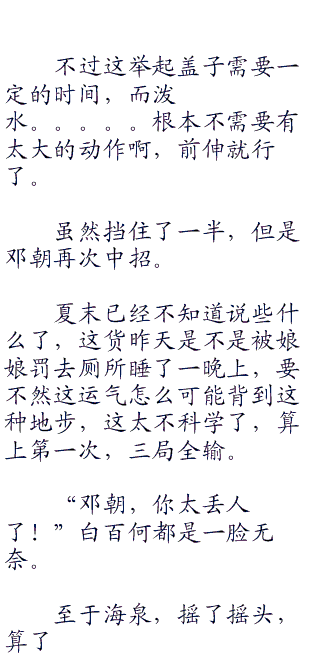 不过这举起盖子需要一
定的时间，而泼
水。。。。。根本不需要有
太大的动作啊，前伸就行
了。
虽然挡住了一半，但是
邓朝再次中招。
夏末已经不知道说些什
么了，这货昨天是不是被娘
娘罚去厕所睡了一晚上，要
不然这运气怎么可能背到这
种地步，这太不科学了，算
上第一次，三局全输。
“邓朝，你太丢人
了！”白百何都是一脸无
奈。
至于海泉，摇了摇头，
算了